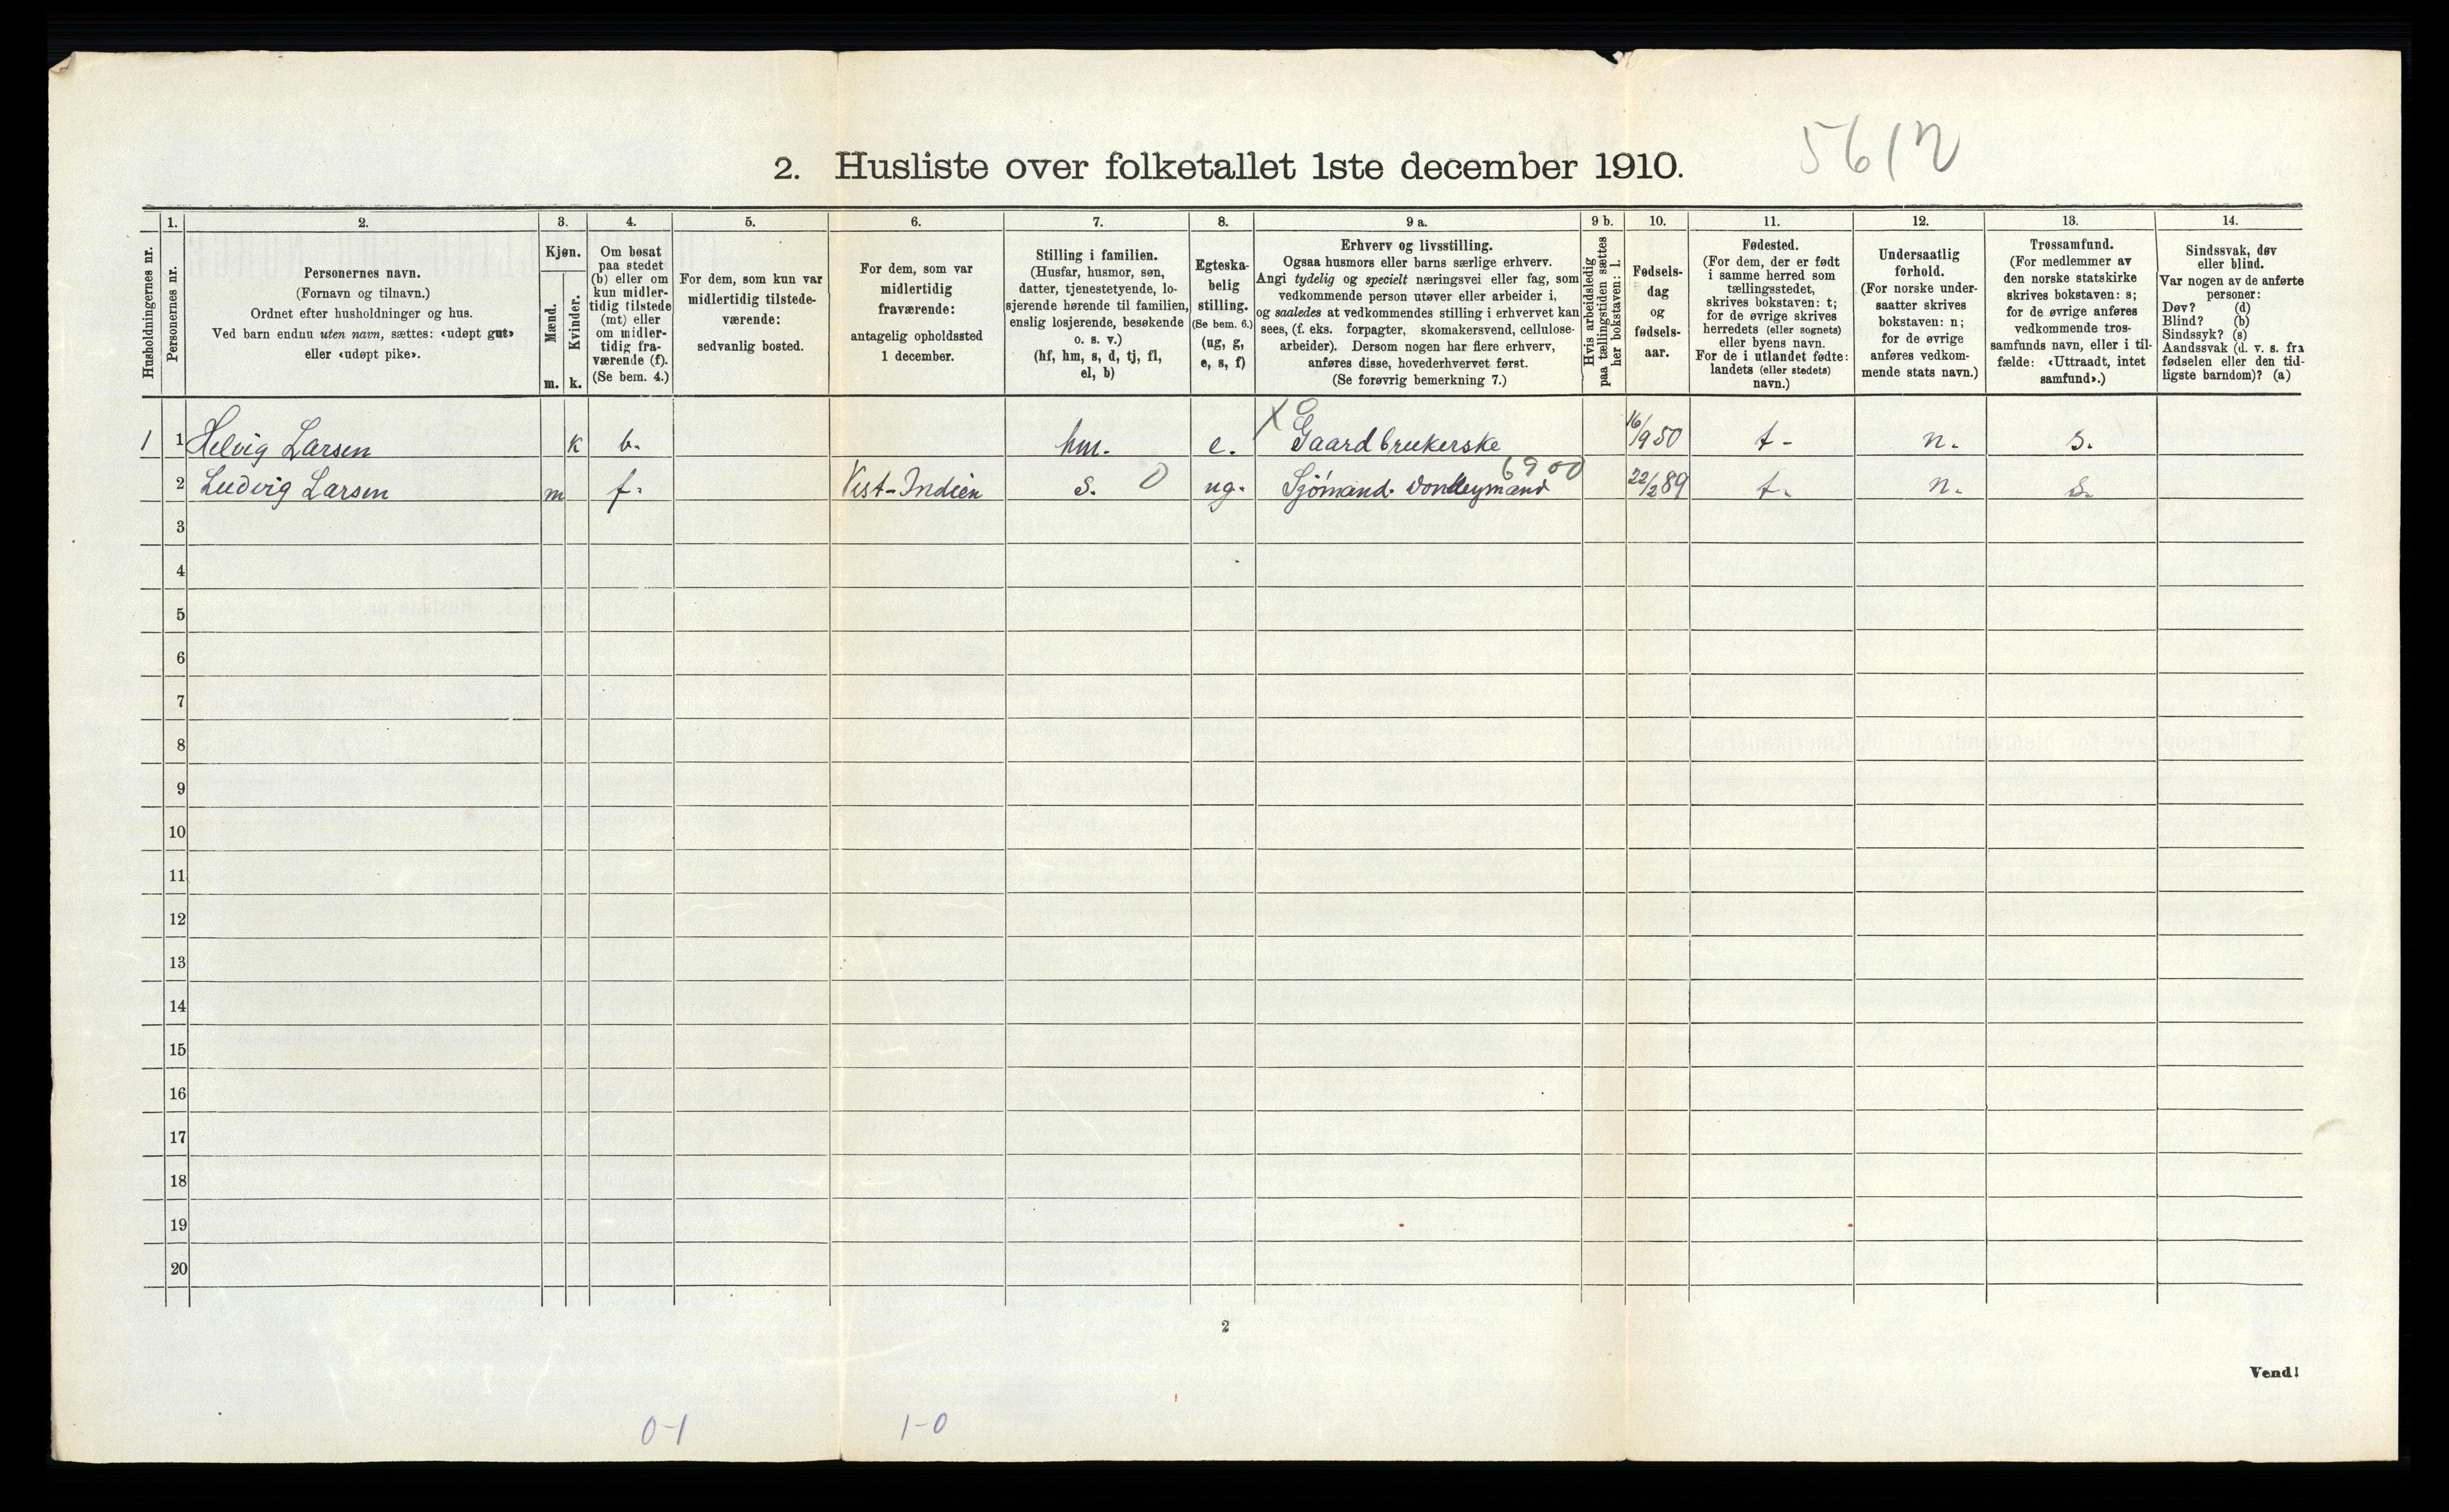 5612
2. Husliste over folketallet 1ste december 1910.
Husholdningernes nr.
1.
Personernes nr.
2.
Personernes navn.
(Fornavn og tilnavn.)
Ordnet efter husholdninger og hus.
Ved barn endnu uten navn, sættes: «udøpt gut»
eller «udøpt pike».
3.
Kjøn.
Mænd.
m.
Kvinder.
k.
4.
Om bosat
paa stedet
(b) eller om
kun midler-
tidig tilstede
(mt) eller
om midler-
tidig fra-
værende (f).
(Se bem. 4.)
5.
For dem, som kun var
midlertidig tilstede-
værende:
sedvanlig bosted.
6.
For dem, som var
midlertidig
fraværende:
antagelig opholdssted
1 december.
7.
Stilling i familien.
(Husfar, husmor, søn,
datter, tjenestetyende, lo-
sjerende hørende til familien,
enslig losjerende, besøkende
o. s. v.)
(hf, hm, s, d, tj, fl,
el, b)
8.
Egteska-
belig
stilling.
(Se bem. 6.)
(ug, g,
e, s, f)
9 a.
Erhverv og livsstilling.
Ogsaa husmors eller barns særlige erhverv.
Angi tydelig og specielt næringsvei eller fag, som
vedkommende person utøver eller arbeider i,
og saaledes at vedkommendes stilling i erhvervet kan
sees, (f. eks. forpagter, skomakersvend, cellulose-
arbeider). Dersom nogen har flere erhverv,
anføres disse, hovederhvervet først.
(Se forøvrig bemerkning 7.)
9 b.
Hvis arbeidsledig
paa tællingstiden sættes
her bokstaven: l.
10.
Fødsels-
dag
og
fødsels-
aar.
11.
Fødested.
(For dem, der er født
i samme herred som
tællingsstedet,
skrives bokstaven: t;
for de øvrige skrives
herredets (eller sognets)
eller byens navn.
For de i utlandet fødte:
landets (eller stedets)
navn.)
12.
Undersaatlig
forhold.
(For norske under-
saatter skrives
bokstaven: n;
for de øvrige
anføres vedkom-
mende stats navn.)
13.
Trossamfund.
(For medlemmer av
den norske statskirke
skrives bokstaven: s;
for de øvrige anføres
vedkommende tros-
samfunds navn, eller i til-
fælde: «Uttraadt, intet
samfund».)
14.
Sindssvak, døv
eller blind.
Var nogen av de anførte
personer:
Døv? (d)
Blind? (b)
Sindssyk? (s)
Aandssvak (d. v. s. fra
fødselen eller den tid-
ligste barndom)? (a)
1 1 Helvig Larsen k b. hm. e. X Gaardbrukerske 16/9 50 t- n. s.
2 Ludvig Larsen m f. Vest-Indien s. 0 ug. Sjömand. Donkeymand 6900 22/2 89 t. n. s.
3
4
5
6
7
8
9
10
11
12
13
14
15
16
17
18
19
20
2
Vend!
0-1 1-0